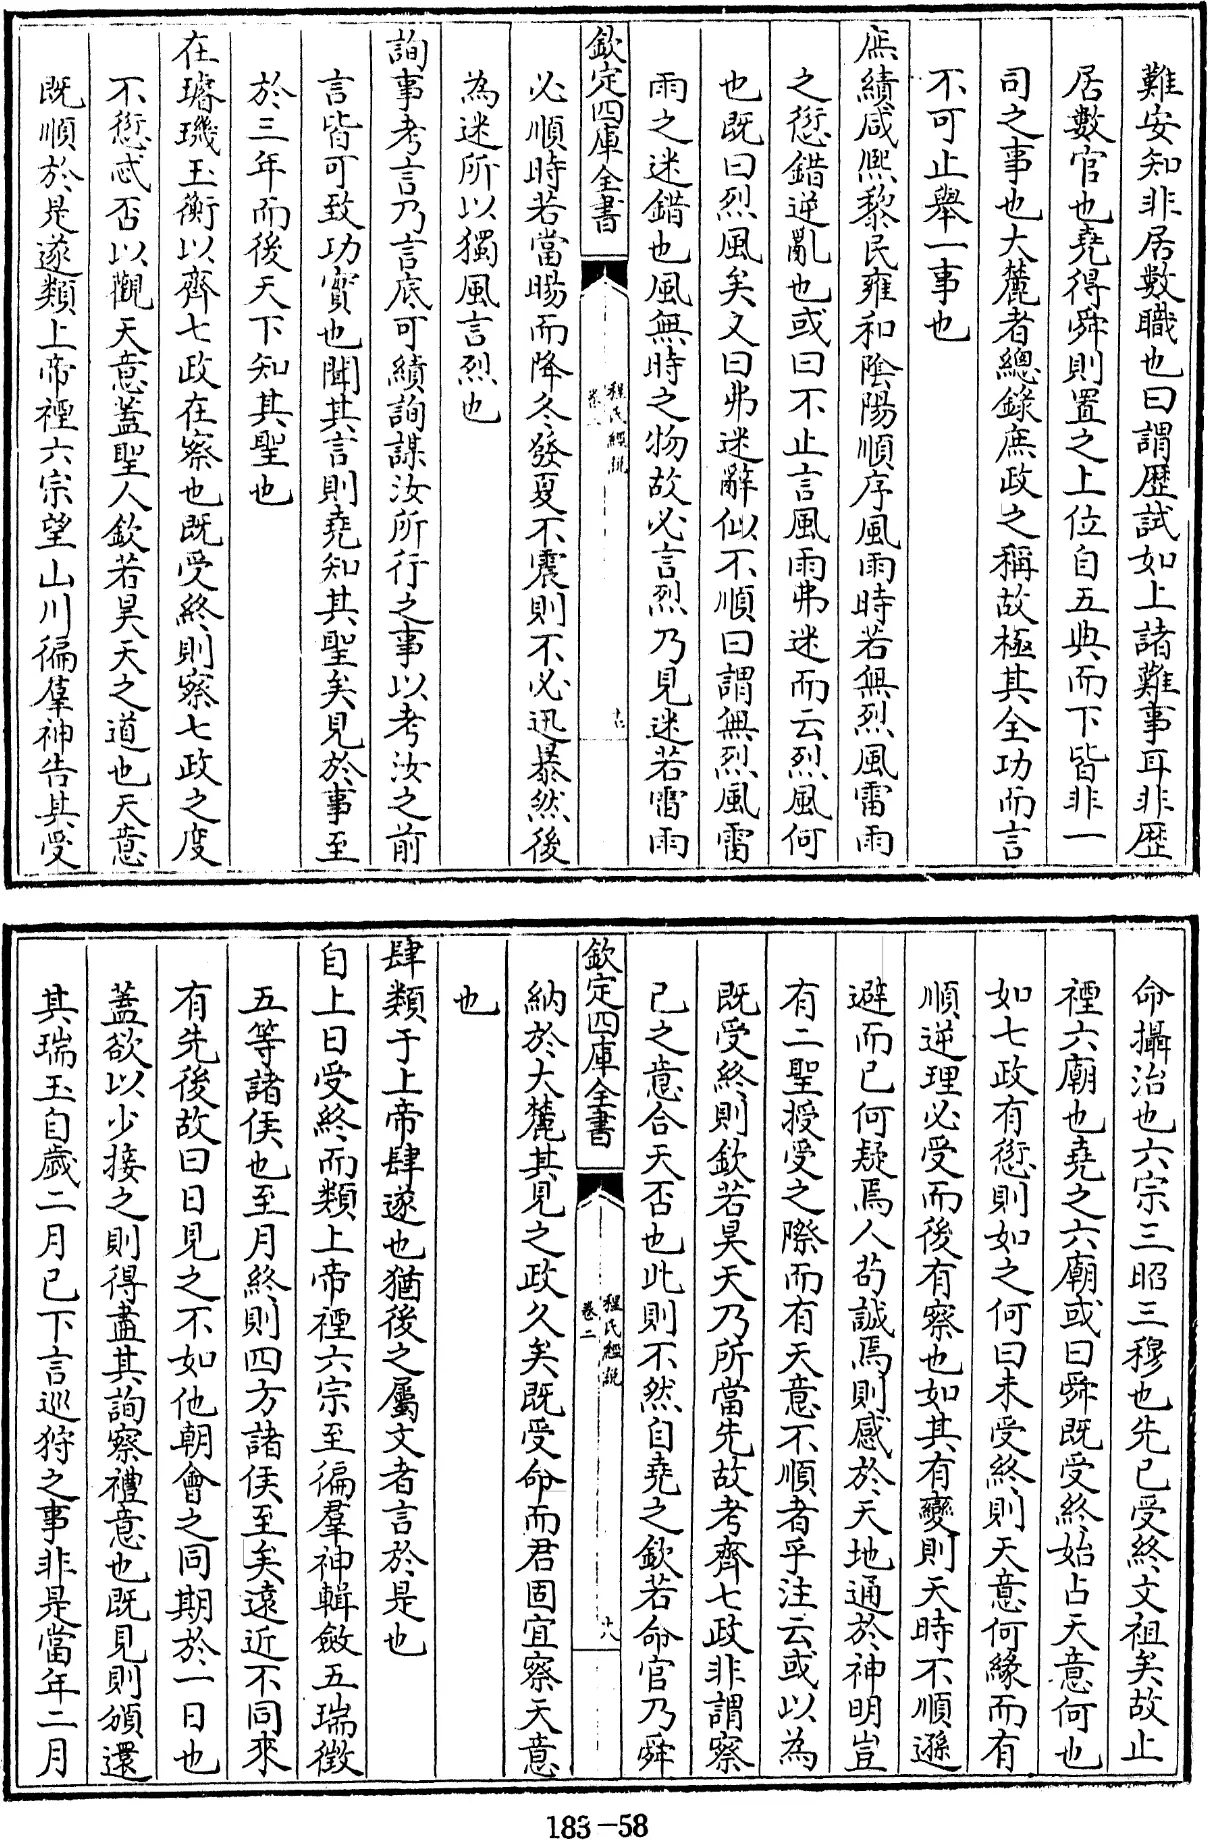 難安知非居數職也曰謂歴試如上諸難事耳非歴
居數官也堯得舜則置之上位自五典而下皆非一
司之事也大麓者總錄庶政之稱故極其全功而言
不可止舉一事也
庶績咸熈黎民雍和隂陽順序風雨時若無烈風雷雨
之愆錯逆亂也或曰不止言風雨弗迷而云烈風何
也既曰烈風矣又曰弗迷辭似不順曰謂無烈風雷
雨之迷錯也風無時之物故必言烈乃見迷若雷雨
欽定四庫全書
程氏經說
必順時若當暘而降冬發夏不震則不必迅暴然後
為迷所以獨風言烈也
詢事考言乃言底可績詢謀汝所行之事以考汝之前
言皆可致功實也聞其言則堯知其聖矣見於事至
於三年而後天下知其聖也
在璿璣玉衡以齊七政在察也既受終則察七政之度
不愆忒否以觀天意蓋聖人欽若昊天之道也天意
既順於是遂類上帝禋六宗望山川徧羣神告其受
命攝治也六宗三昭三穆也先已受終文祖矣故止
禋六廟也堯之六廟或曰舜既受終始占天意何也
如七政有愆則如之何曰未受終則天意何緣而有
順逆理必受而後有察也如其有變則天時不順遜
避而已何疑焉人苟誠焉則感於天地通於神明豈
有二聖授受之際而有天意不順者乎注云或以為
既受終則欽若昊天乃所當先故考齊七政非謂察
已之意合天否也此則不然自堯之欽若命官乃舜
欽定四庫全書
程氏經說
卷二
十八
納於大麓其見之政久矣既受命而君固宜察天意
也
肆類于上帝肆遂也猶後之屬文者言於是也
自上日受終而類上帝禋六宗至徧羣神輯斂五瑞徵
五等諸侯也至月終則四方諸侯至矣遠近不同來
有先後故曰日見之不如他朝會之同期於一日也
蓋欲以少接之則得盡其詢察禮意也既見則頒還
其瑞玉自歲二月已下言巡狩之事非是當年二月
183-58